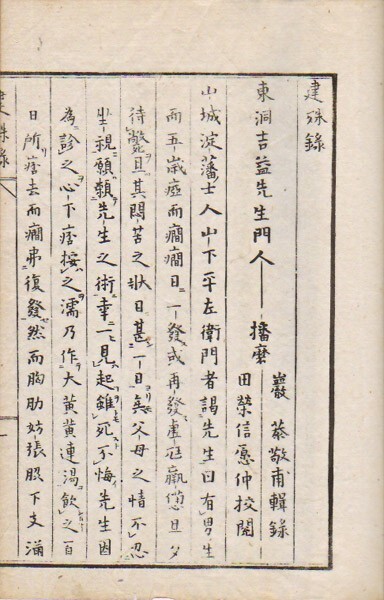 建殊錄
東洞吉益先生門人 播磨 巖 恭敬甫輯錄
田榮信愿仲校閱
山城淀藩士人山下平左衛門者謁先生曰有男生
而五歲瘂而癇癇日一發或再發虛尫羸憊旦夕
待斃且其悶苦之狀日甚一日矣父母之情不忍
坐視願賴先生之術幸一見起雖死不悔先生因
為診之心下痞按之濡乃作大黃黃連湯飲之百
日所痞去而癇弗復發然而胸肋妨張脇下支滿